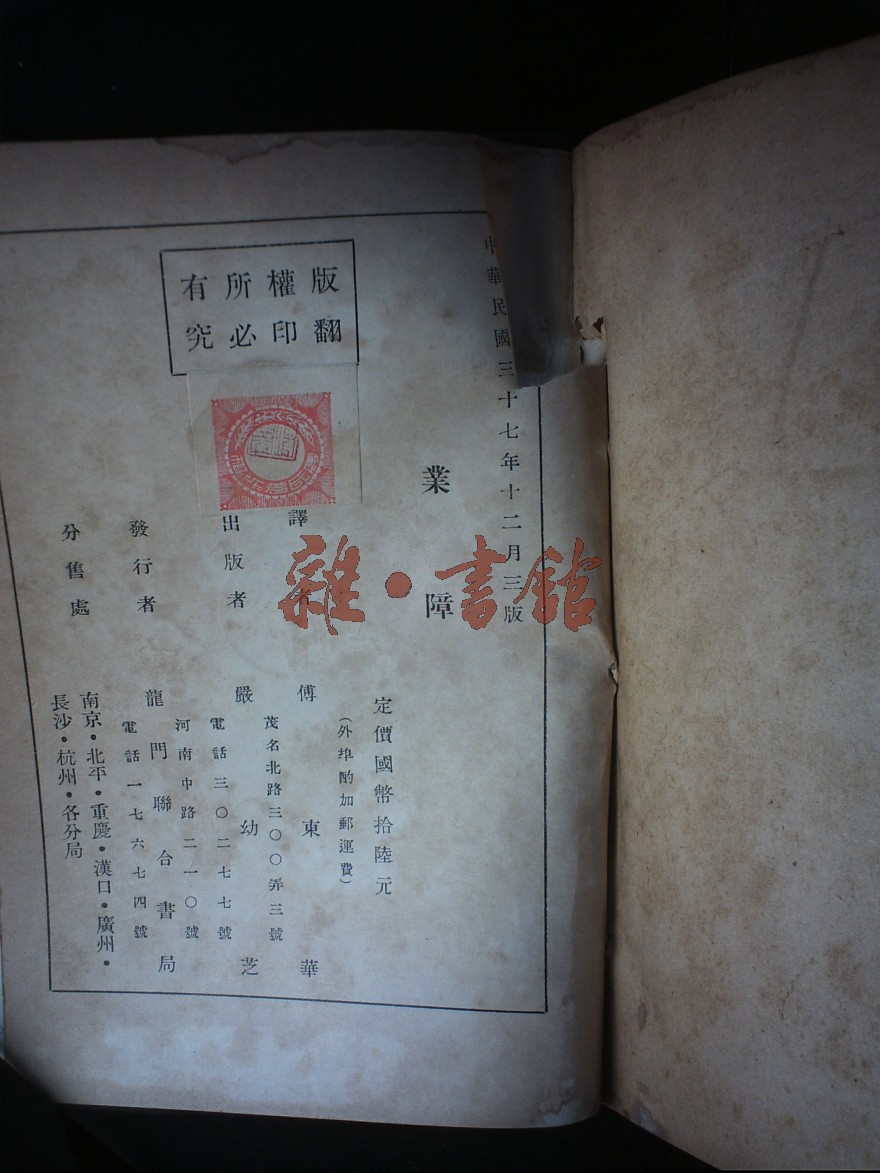 中華民國三十七年十二月三版
業障
定價國幣拾陸元
(外埠酌加郵運費)
譯者 傅東華
茂名北路三〇〇弄三號
出版者 嚴幼芝
電話三〇二七七號
河南中路二一〇號
發行者 龍門聯合書局
電話一七六七四號
分售處 南京·北平·重慶·漢口·廣州·
長沙·杭州·各分局
版權所有
翻印必究
雜·書館